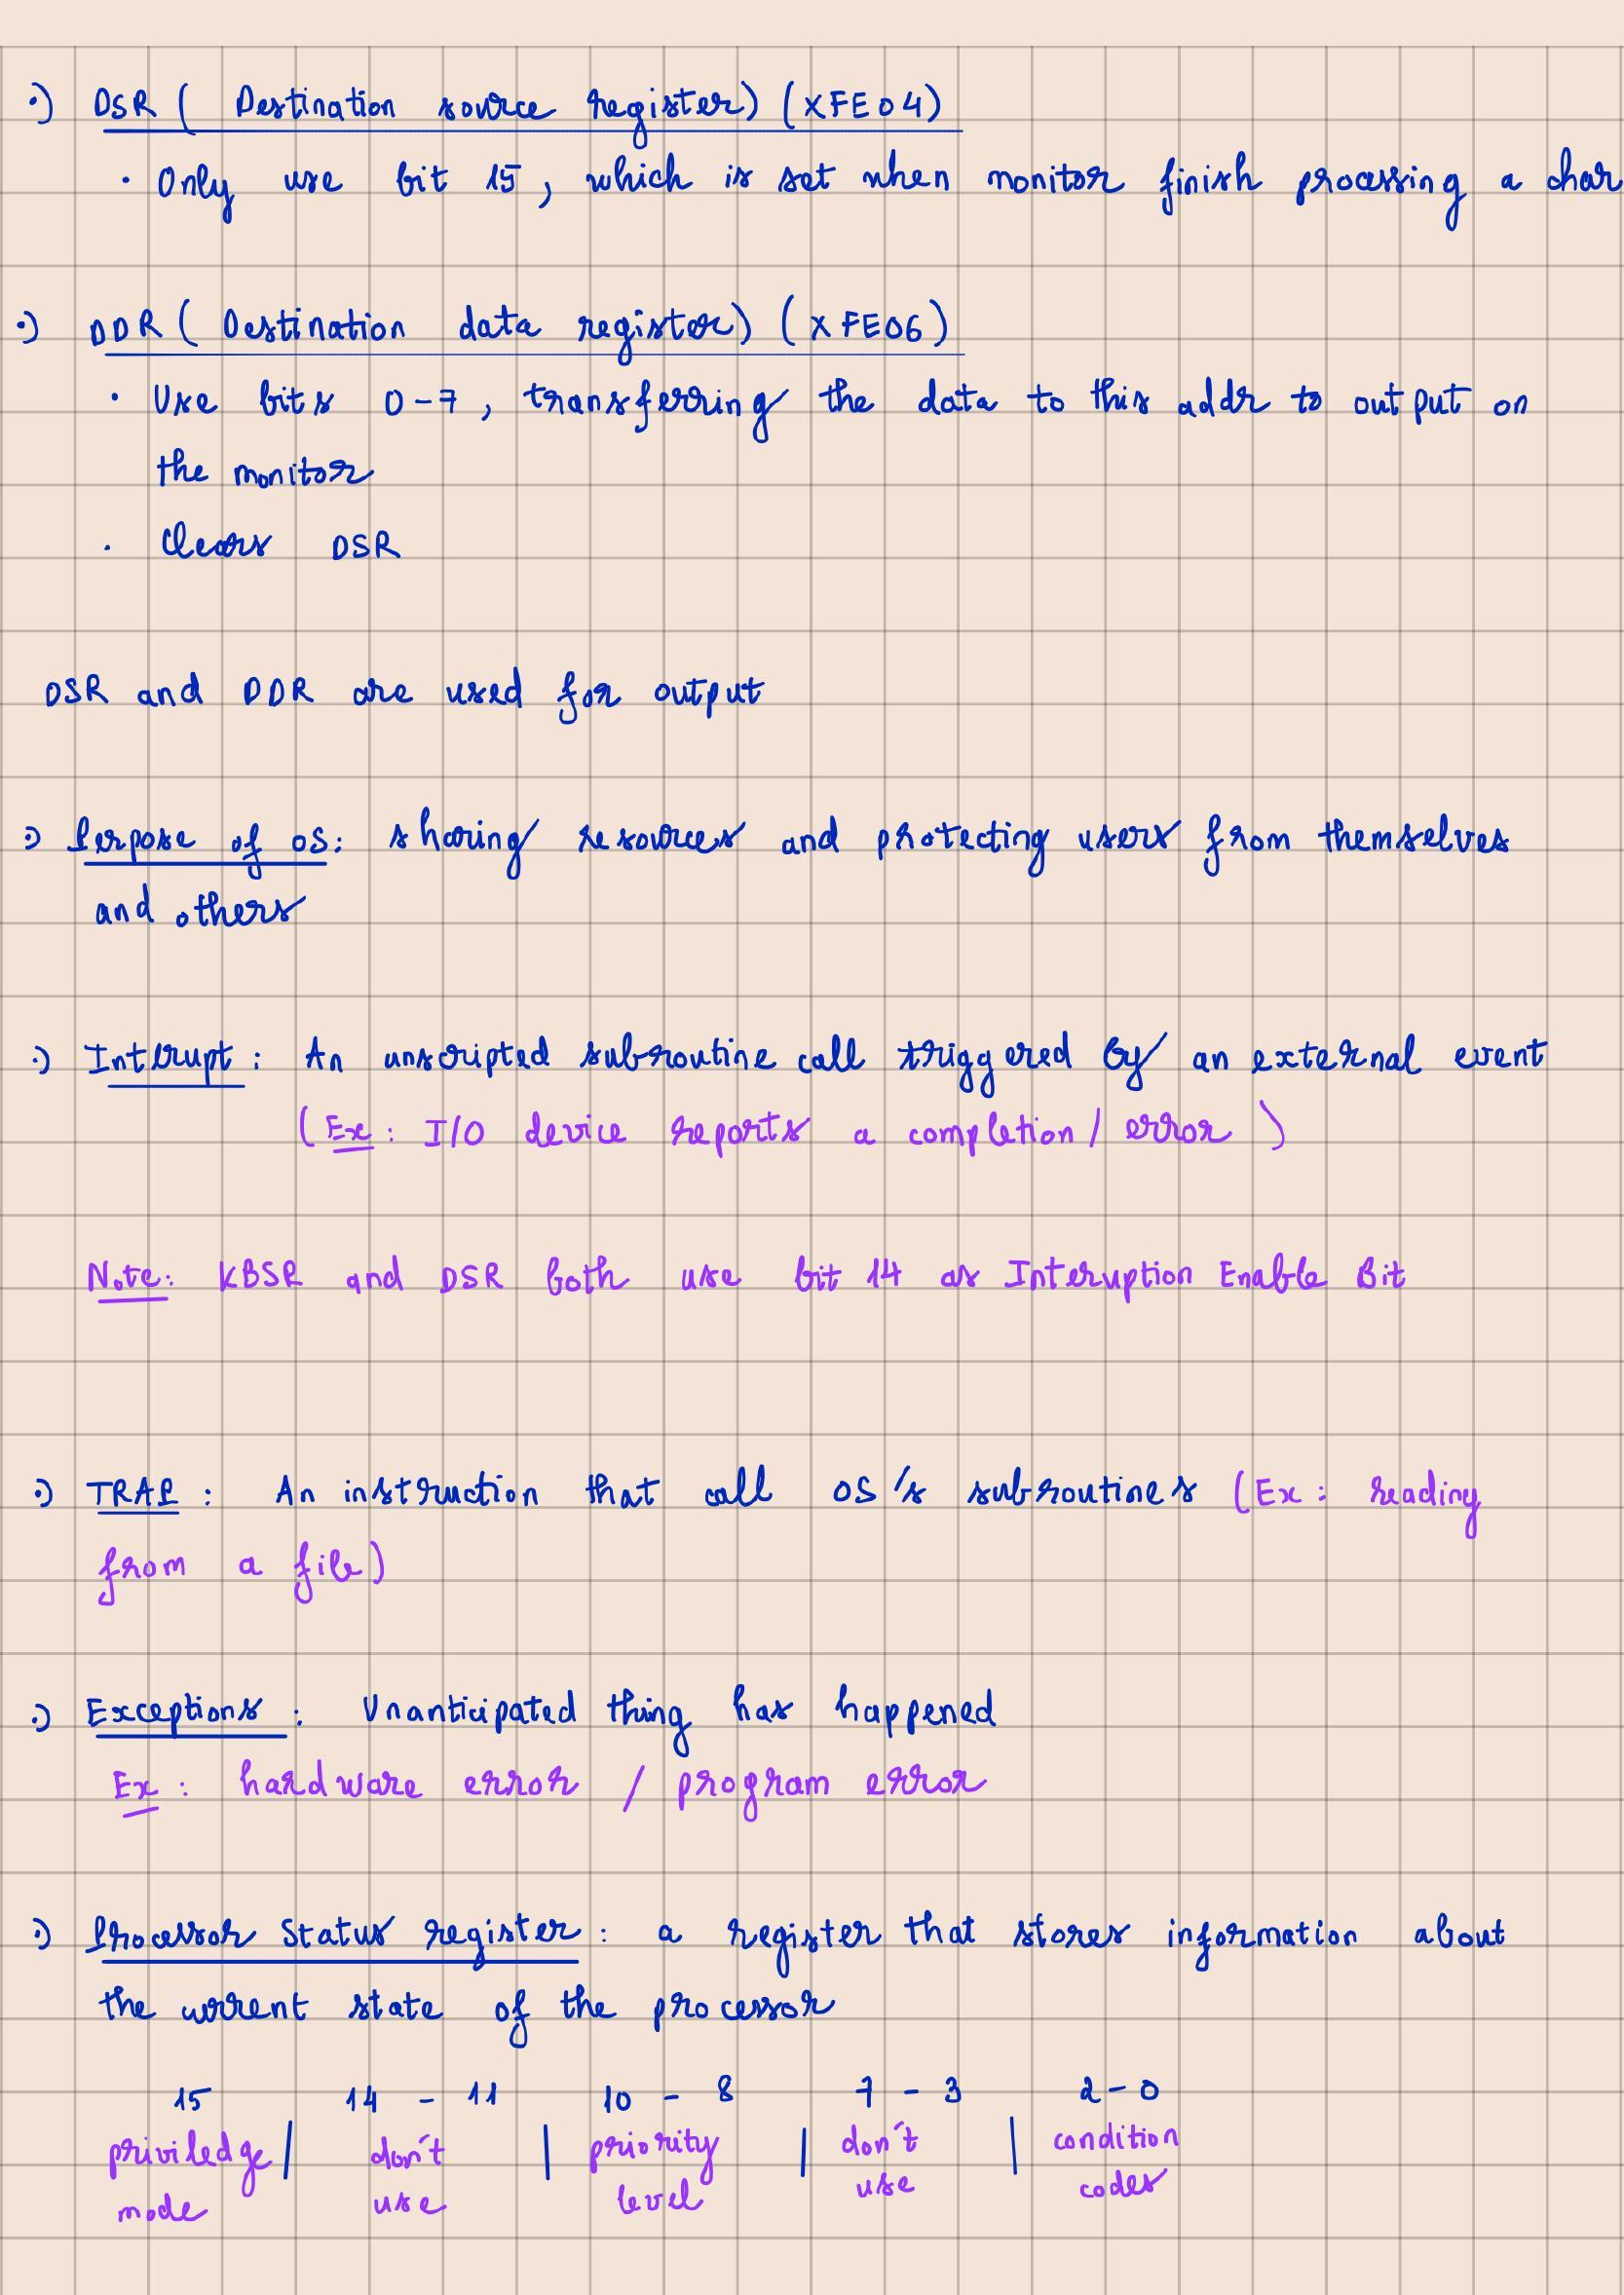 •) DSR ( Destination source register) (xFE04)
• Only use bit 15, which is set when monitor finish processing a char
•) DDR ( Destination data register) (xFE06)
• Use bits 0-7, transferring the data to this addr to output on
the monitor
• Clears DSR
DSR and DDR are used for output
•) Perpose of OS: sharing resources and protecting users from themselves
and others
•) Interupt: An unscripted subroutine call triggered by an external event
(Ex: I/O device reports a completion / error )
Note: KBSR and DSR both use bit 14 as Interuption Enable Bit
•) TRAP : An instruction that call OS's subroutines (Ex: reading
from a file)
•) Exceptions : Unanticipated thing has happened
Ex : hardware error / program error
•) Processor Status register : a register that stores information about
the current state of the processor
15 14 - 11 10 - 8 7 - 3 2-0
priviledge | don't | priority | don't | condition
mode use level use codes